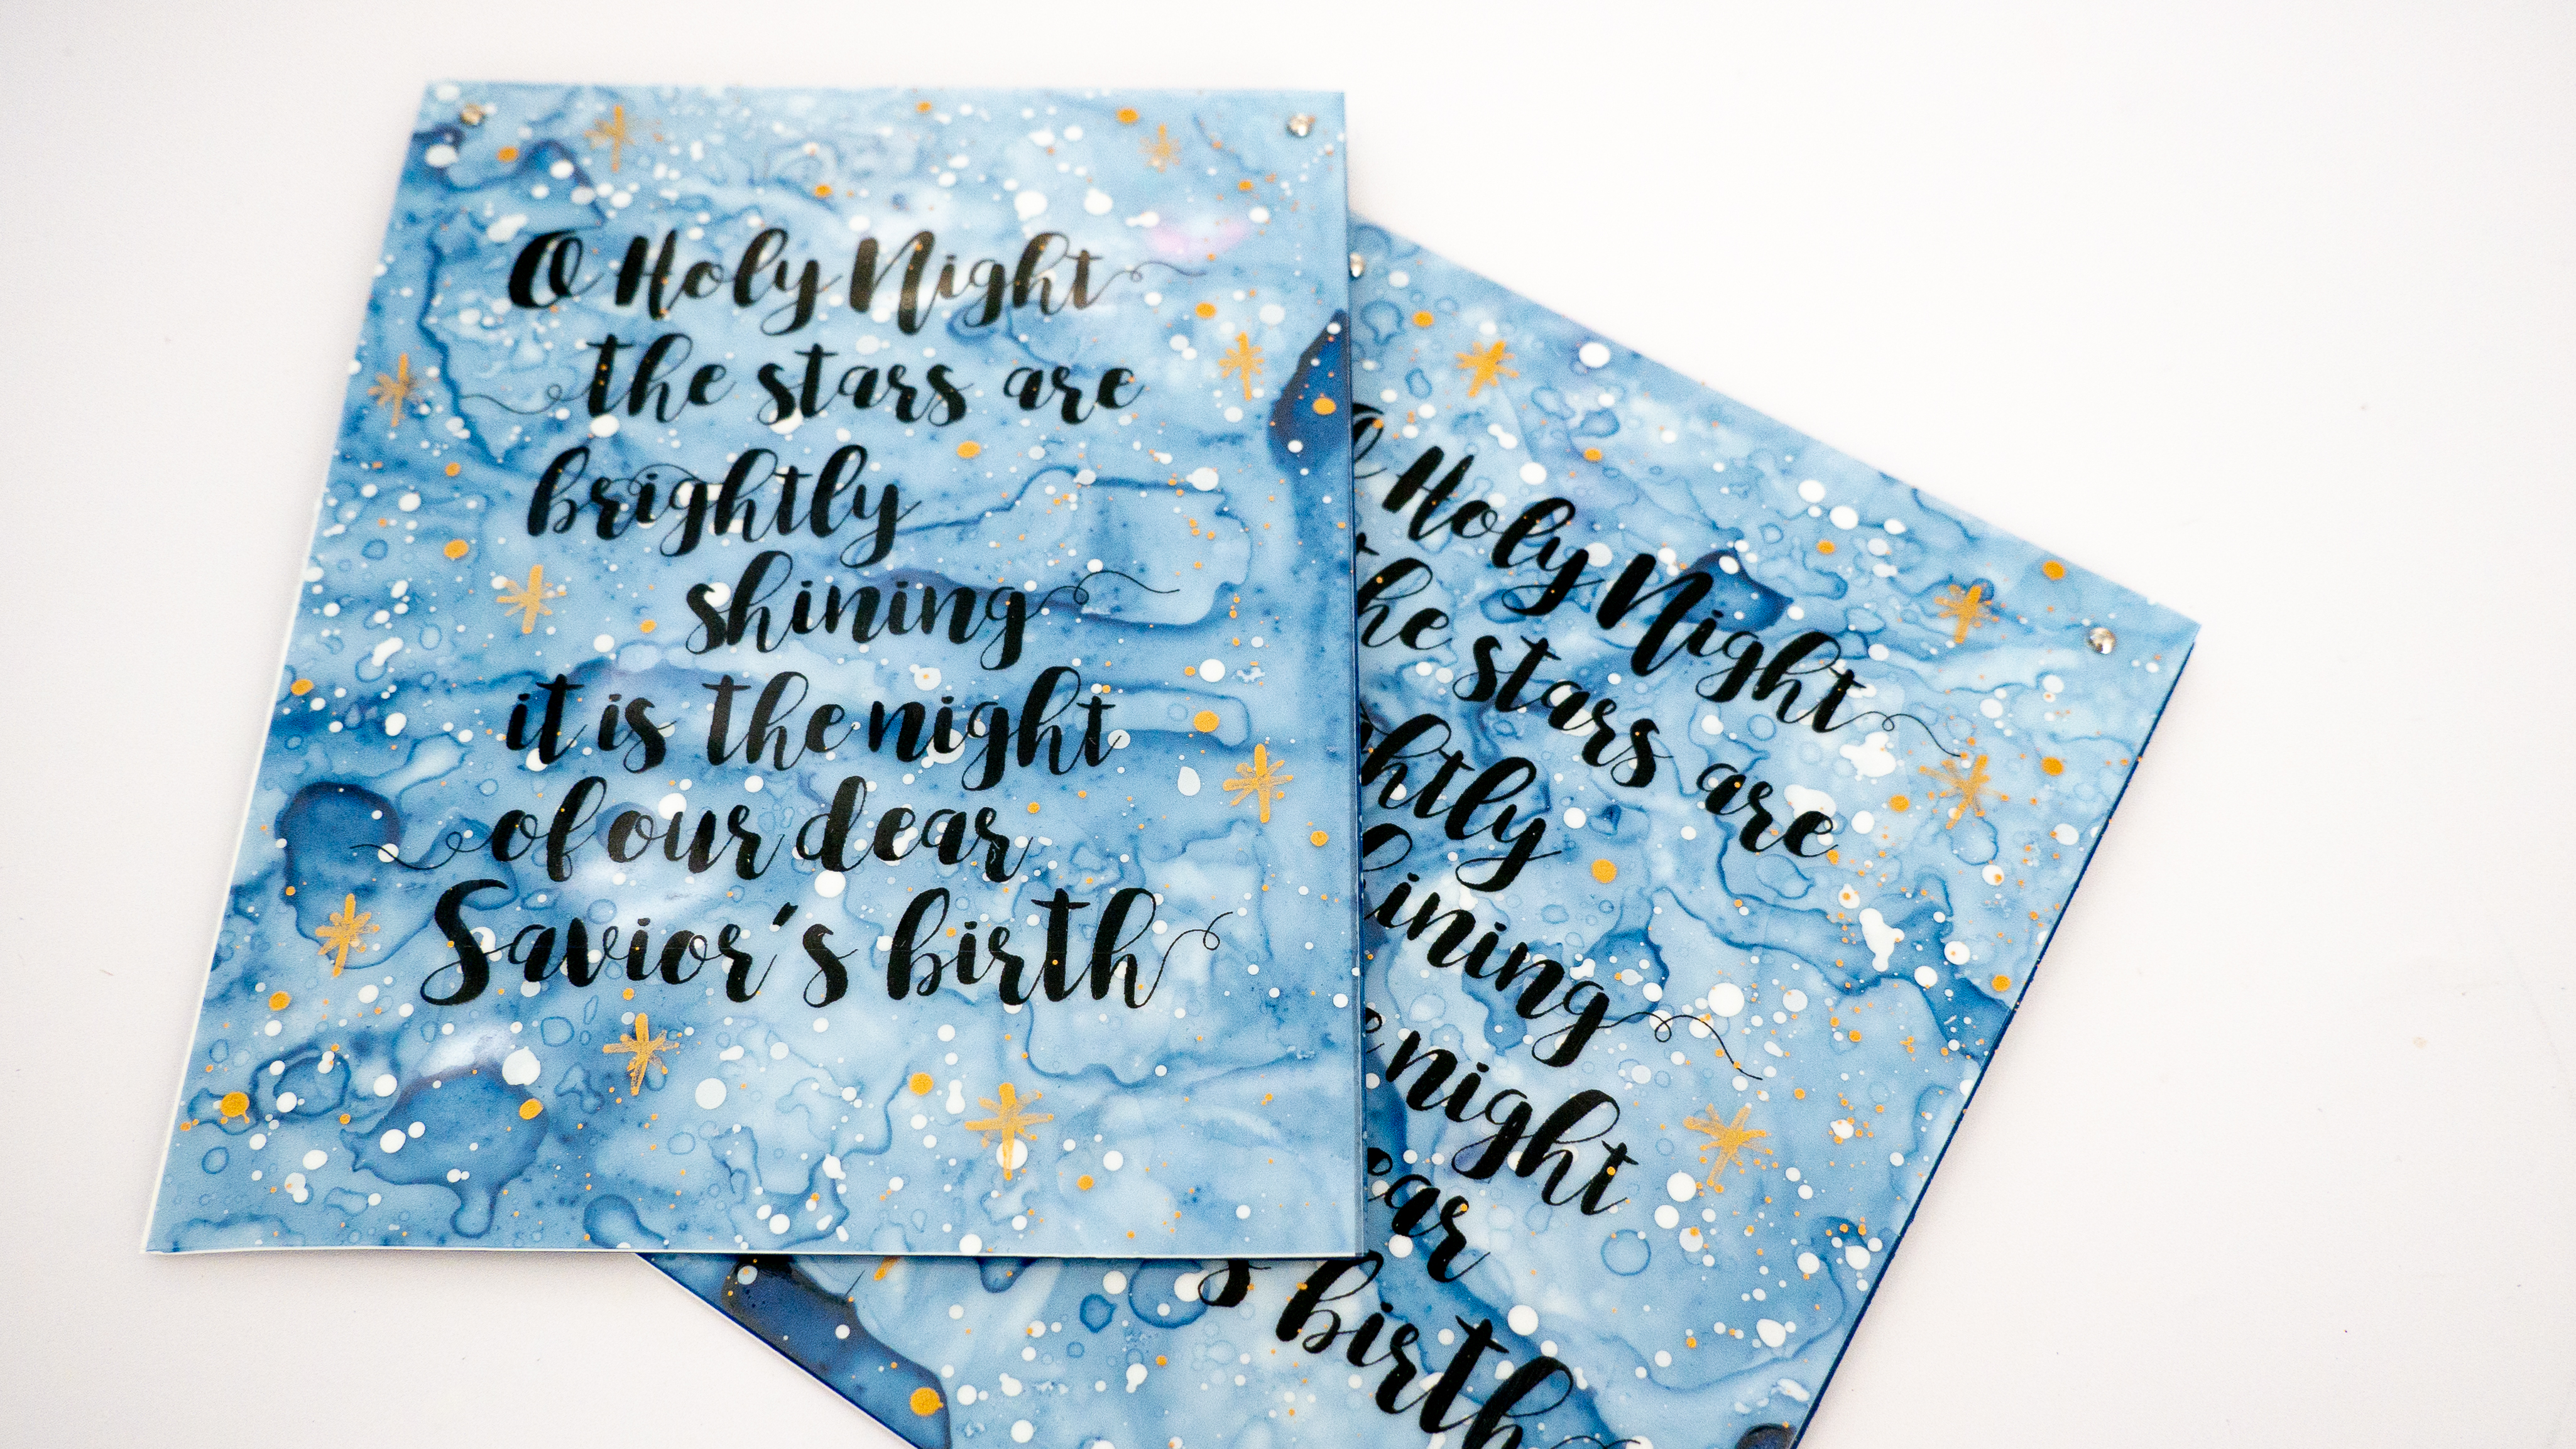 O Holy Night
the stars are
brightly
shining
it is the night
of our dear
Savior's birth
Holy Night
the stars are
night
birth